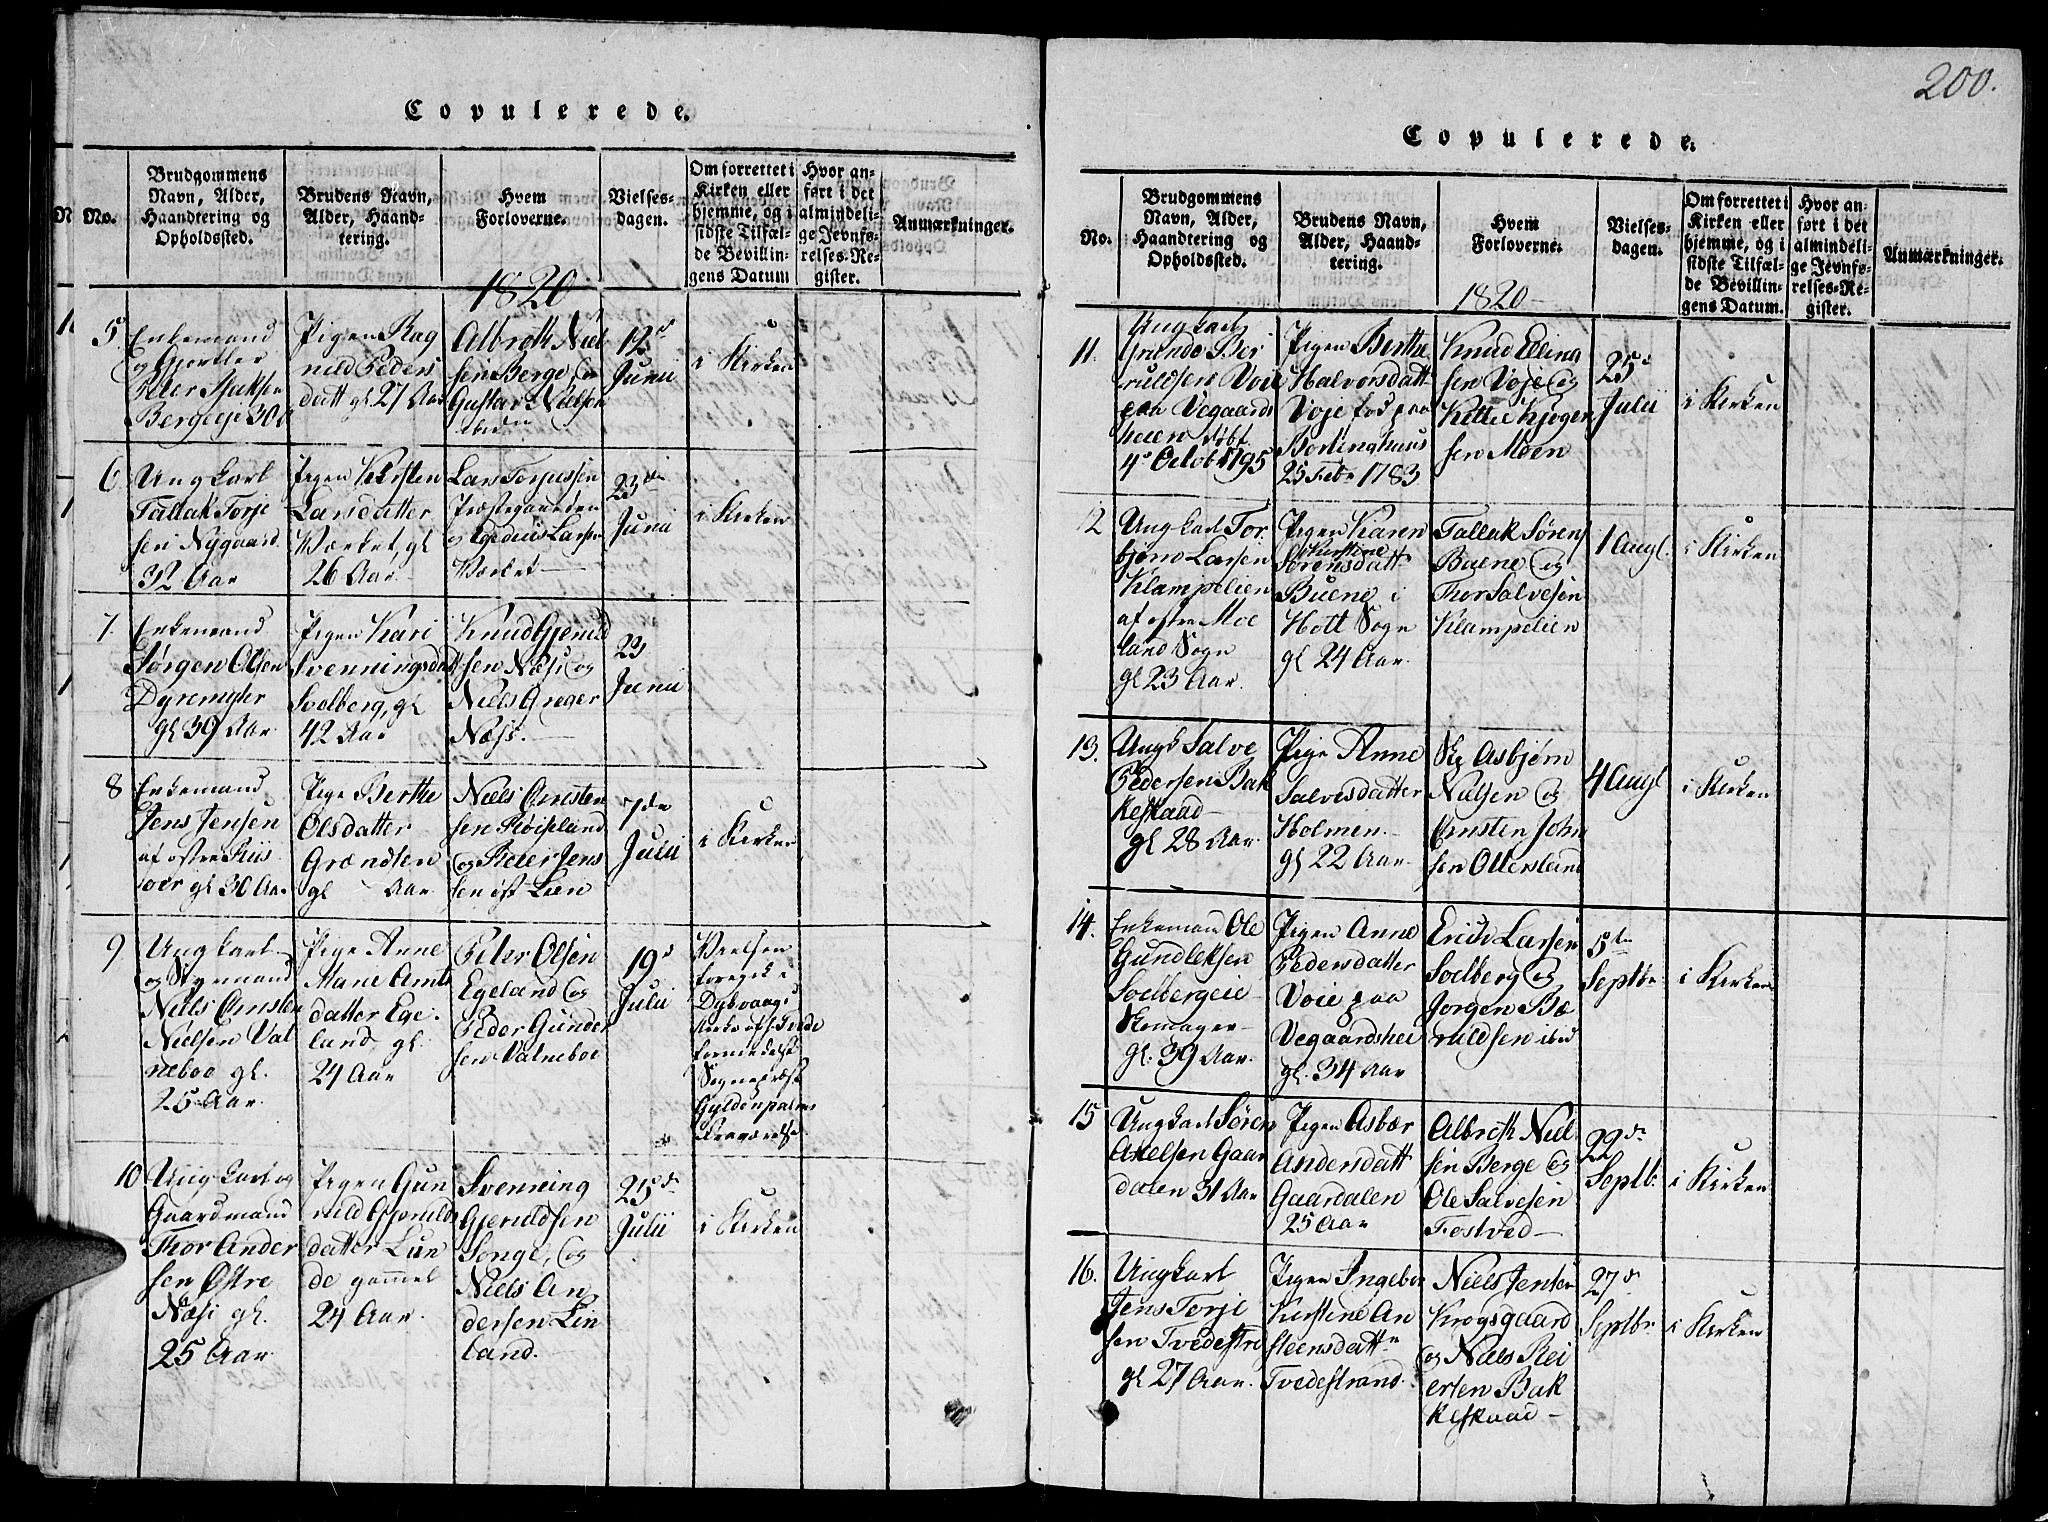 Copulerede.
No.
Brudgommens
Navn, Alder,
Haandtering og
Opholdssted.
Brudens Navn,
Alder, Haand-
tering.
Hvem
Forloverne.
Vielses-
dagen.
Om forrettet i
Kirken eller
hjemme, og i
sidste Tilfæl-
de Bevillin-
gens Datum
Hvor an-
ført i det
almindeli-
ge Jevnfø-
relses-Re-
gister.
Anmærkninger.
1820
5.
Enkemand
og
Peter
Berge
Pigen Rag
nild Peders
datt gl 27 Aar
Albrekt Niel
sen Berge, og
Gustav Nielsen
ibid
12d
Junii
i Kirken
6
Ungkarl
Tallak Terje
sen Nygaard
32 Aar
Pigen Kirsten
Larsdatter
Værket, gl
26 Aar
Lars Torjussen
Præstegaarden
og Egedius Larsen
Værket
23de
Junii
i Kirken
7.
Enkemand
Jørgen Olsen
Dyremyhr
gl 39 Aar
Pigen Kari
Svenningsdatt
Solberg, gl
42 Aar
Knud Gjeruld
sen Næss og
Niels Greger
Næss.
23
Junii
8
Enkemand
Jens Jensen
af østre Riis
oer gl 30 Aar
Pige Berthe
Olsdatter
Grændsen
gl Aar
Niels Omsten
sen Røisland
og Reier Jens
sen
7de
Julii
i Kirken
9
Ungkarl
og Styrmand
Niels Omsten
Nielsen Val
neboe gl.
25 Aar.
Pige Anne
Marie Amts
datter Ege-
land gl.
24 Aar
Peter Olsen
Egeland og
Peder Gunder
sen Valneboe
19d
Julii
Vielsen
foregik i
Dybvaags
Kirke
formedelst
Sognepræst
Gyldenpalms
Fraværelse
10
Ungkarl og
Gaardmand
Thor Ander
sen Østre
Næss gl.
25 Aar
Pigen Gun
nild Gjerulds
datter Lun
de gammel
24 Aar.
Svenning
Gjeruldsen
Songe, og
Niels An
dersen Lin
land.
25de
Julii
i Kirken
200.
Copulerede.
No.
Brudgommens
Navn, Alder,
Haandtering og
Opholdssted.
Brudens Navn,
Alder, Haand-
tering.
Hvem
Forloverne.
Vielses-
dagen.
Om forrettet i
Kirken eller
hjemme, og i
sidste Tilfæl-
de Bevillin-
gens Datum.
Hvor an-
ført i det
almindeli-
ge Jevnfø-
relses-Re-
gister.
Anmærkninger.
1820
11.
Ungkarl
Gunde Ber
uldsen Voie
paa Vegaards
heien døbt
4de Octob 1795
Pigen Berthe
Halvorsdatt
Voje fød paa
Borlinghuus
25 Febr 1783
Knud Elling
sen Voje og
Kittel Kjøger
sen Moen
25d
Julii
i Kirken
12
Ungkarl Tor
bjørn Larsen
Klampelien
af østre Moe
land Sogn
gl 23 Aar.
Pigen Karen
Kirstine
Sørensdatt
Buene i
Holt Sogn
gl 24 Aar.
Tallak Sørens
Buene og
Thor Salvesen
Klampelien
1 Augl.
i Kirken
13.
Ungk Salve
Pedersen Bak
keskaad
gl 28 Aar
Pige Anne
Salvesdatter
Holmen
gl 22 Aar.
Asbjørn
Nielsen og
Omsten John
sen Ottersland
4 Augl
i Kirken
14.
Enkeman Ole
Gundleksen
Solbergeie
Skomager
gl. 39 Aar.
Pigen Anne
Pedersdatter
Voie paa
Vegaardshei
gl. 34 Aar
Erich Larsen
Solberg og
Jørgen Be
ruldsen ibid
5te
Septbr
i Kirken
15
Ungkarl Søren
Axelsen Gaar
dalen 31 Aar
Pigen Asbær
Andersdatt
Gaardalen
25 Aar
Albrekt Niel
sen Berge og
Ole Salvesen
Fostved
22de
Septbr
i Kirken
16.
Ungkarl
Jens Terje
sen Tvedestra
gl 27 Aar.
Pigen Ingebor
Kirstine An
steensdattr
Tvedestrand.
Niels Jensen
Krogsgaard
og Niels Rei
ersen Bak
keskaad
27d
Septbr
i Kirken